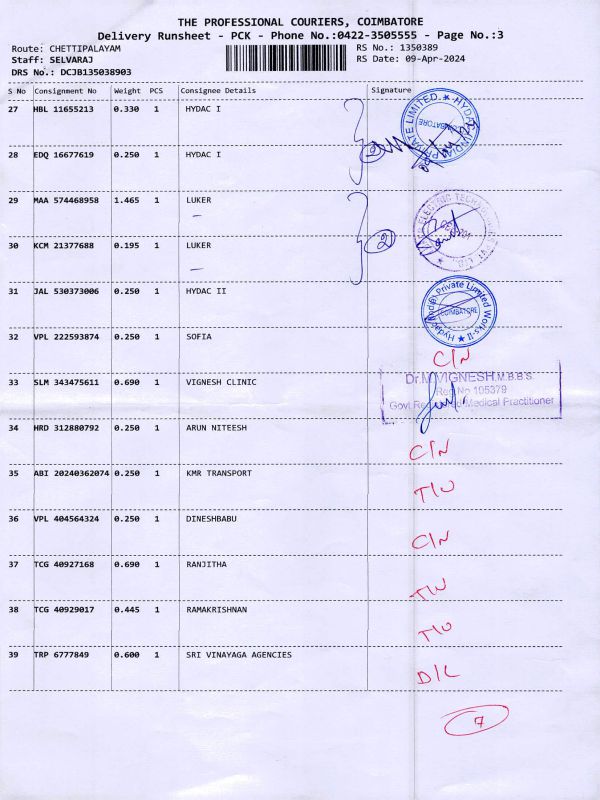 THE PROFESSIONAL COURIERS, COIMBATORE
Delivery Runsheet - PCK - Phone No.:0422-3505555 - Page No.:3
Route: CHETTIPALAYAM RS No.: 1350389
Staff: SELVARAJ RS Date: 09-Apr-2024
DRS No.: DCJB135038903
S No Consignment No Weight PCS Consignee Details Signature
27 HBL 11655213 0.330 1 HYDAC I
28 EDQ 16677619 0.250 1 HYDAC I
29 MAA 574468958 1.465 1 LUKER
30 KCM 21377688 0.195 1 LUKER
2
31 JAL 530373006 0.250 1 HYDAC II
COIMBATORE
32 VPL 222593874 0.250 1 SOFIA
C/N
33 SLM 343475611 0.690 1 VIGNESH CLINIC
Dr.M.VIGNESH.M.B.B.S.
Reg No 105379
Govt Registered Medical Practitioner
34 HRD 312880792 0.250 1 ARUN NITEESH
C/N
35 ABI 20240362074 0.250 1 KMR TRANSPORT
T/W
36 VPL 404564324 0.250 1 DINESHBABU
C/N
37 TCG 40927168 0.690 1 RANJITHA
T/W
38 TCG 40929017 0.445 1 RAMAKRISHNAN
T/W
39 TRP 6777849 0.600 1 SRI VINAYAGA AGENCIES
D/L
7